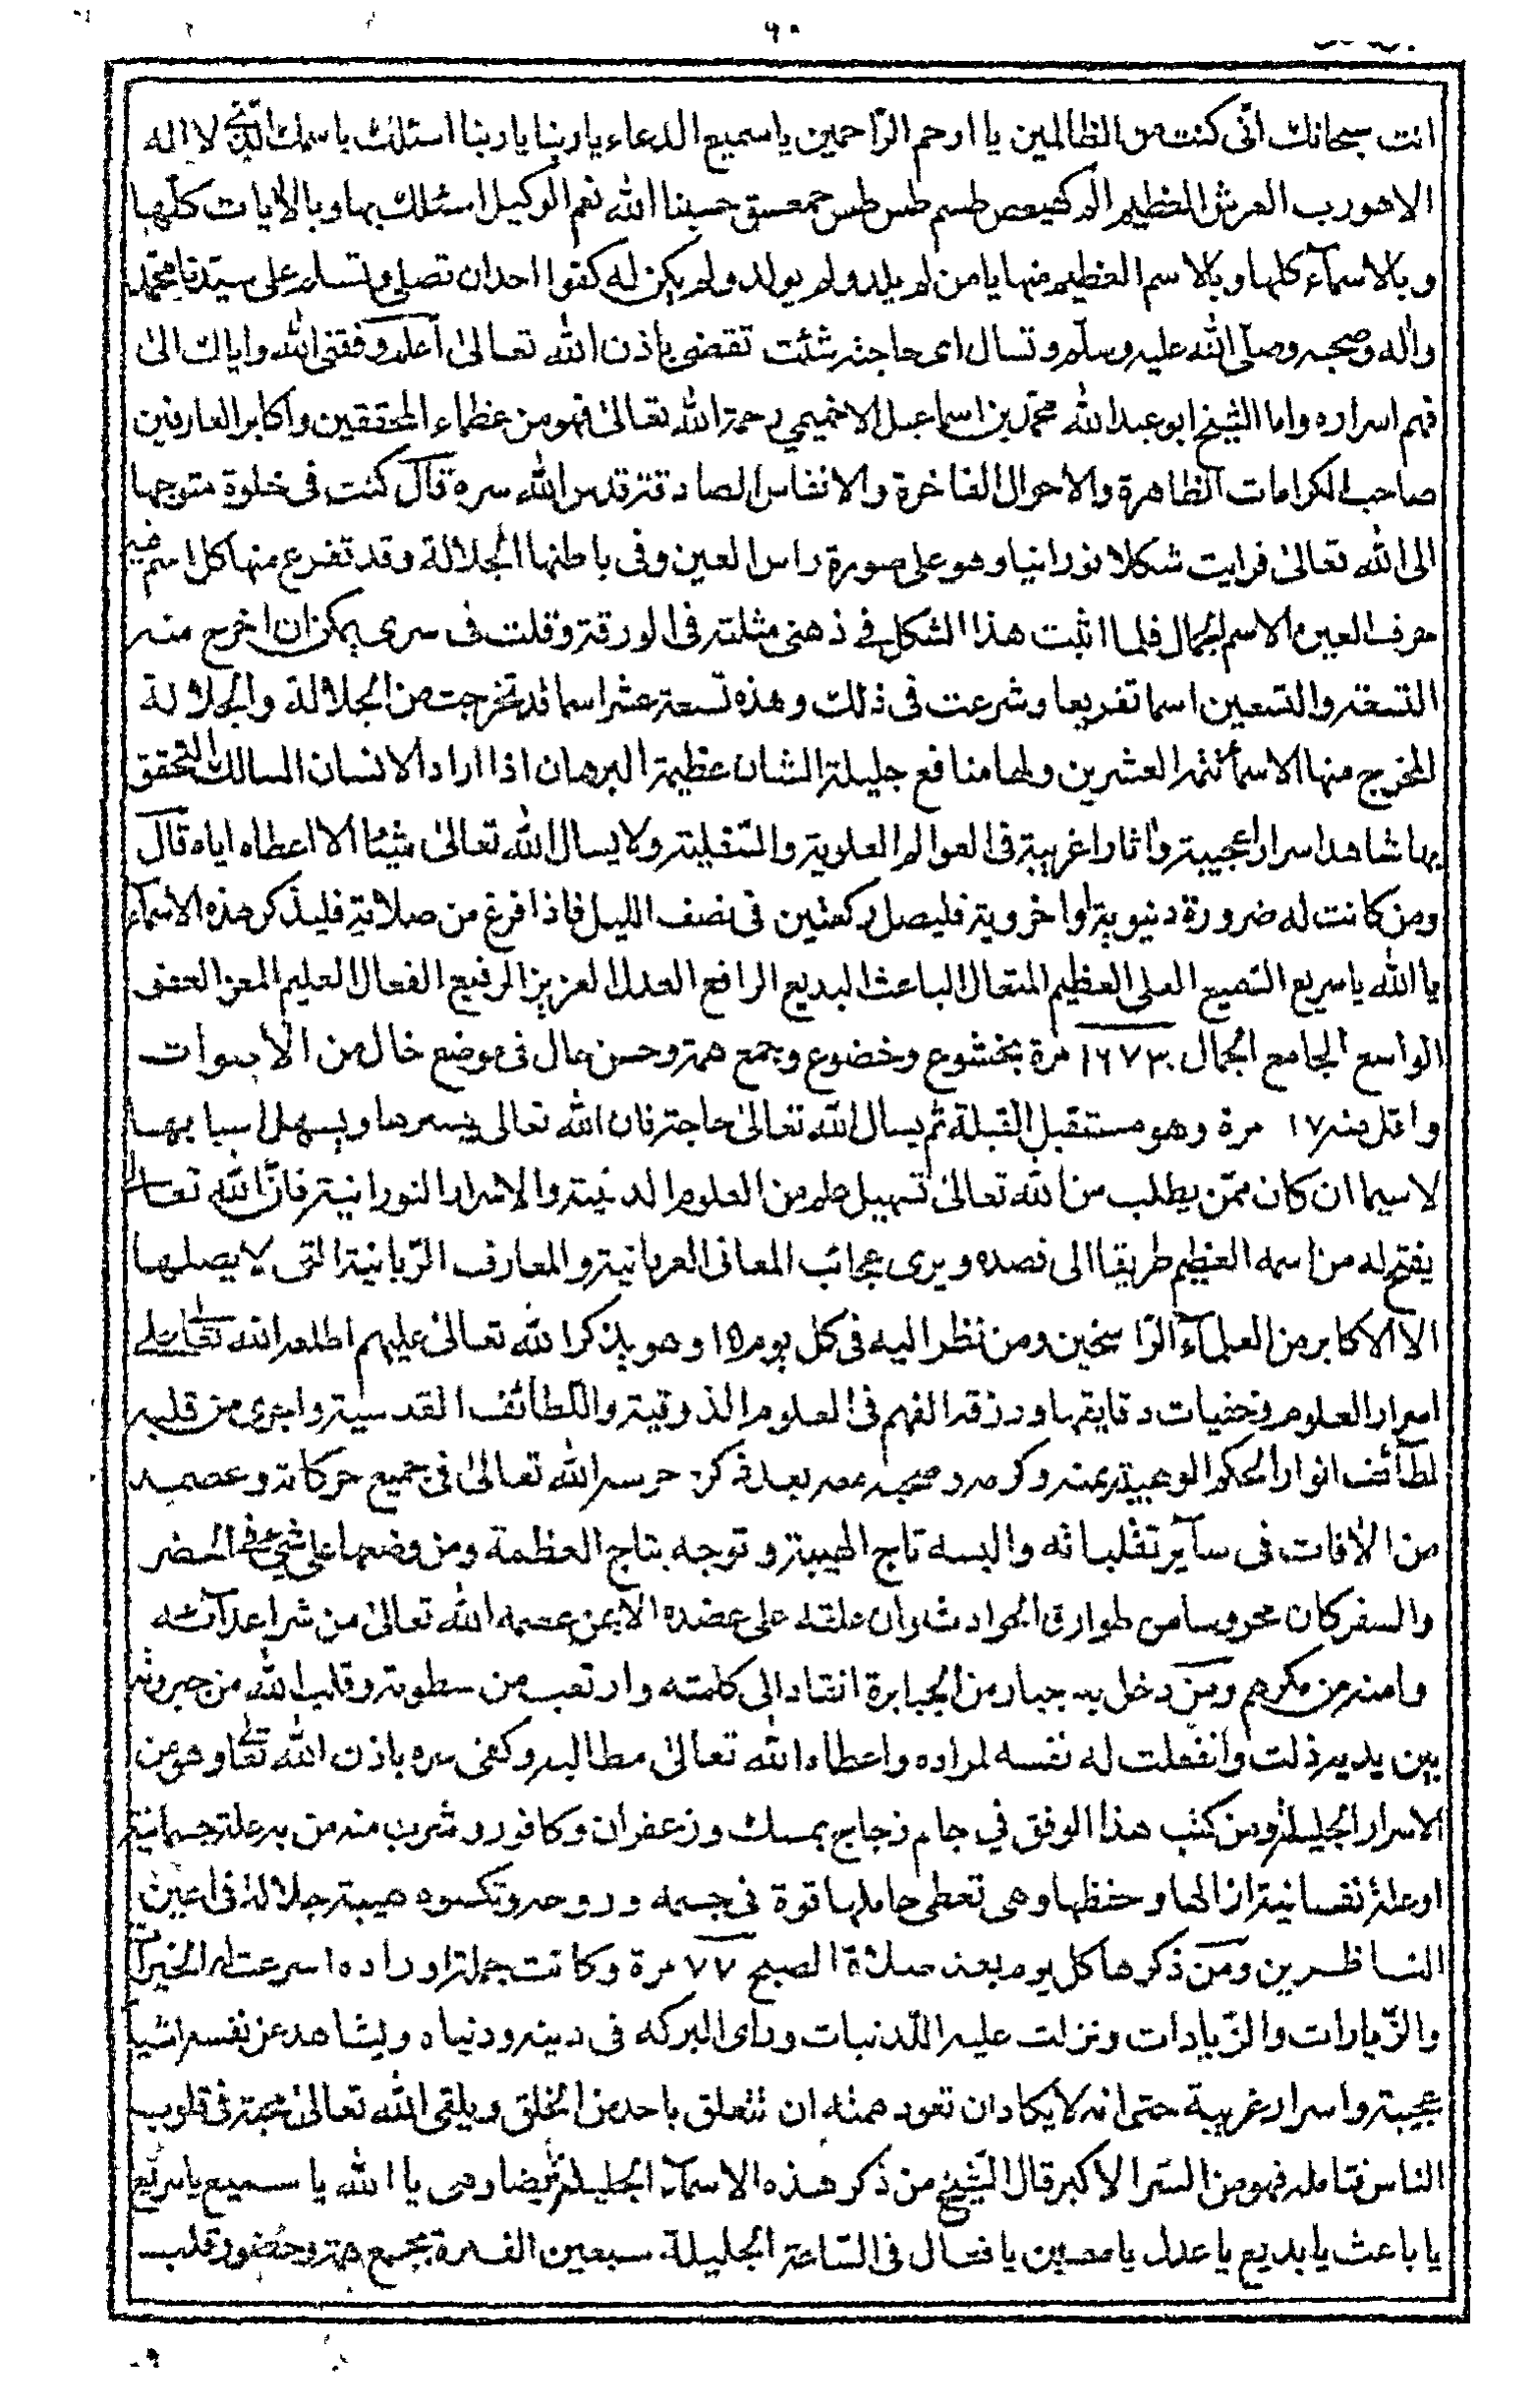 ٩٠
انت سبحانك انّى كنت من الظالمين يا ارحم الرّاحمين يا سميع الدعاء يا ربنا يا ربنا اسئلك باسمك الّذى لا اله
الا هو رب العرش العظيم الم كهيعص طسم طس طس حمعسق حسبنا الله نعم الوكيل اسئلك بها وبالايات كلّها
وبالاسمآء كلها وبالاسم العظيم منها يا من لم يلد ولم يولد ولم يكن له كفوا احد ان تصلى وتسلم على سيّدنا محمّد
واٰله وصحبه وصلى الله عليه وسلم وتسال اى حاجة شئت تقضى باذن الله تعالىٰ اعلم وفقنى الله واياك الىٰ
فهم اسراره واما الشيخ ابو عبد الله محمّد بن اسماعيل الاخميمي رحمة الله تعالىٰ فهو من عظماء المحققين واكابر العارفين
صاحب الكرامات الظاهرة والاحوال الفاخرة والانفاس الصادقة قدس الله سره قال كنت فى خلوة متوجها
الى الله تعالىٰ فرايت شكلا نورانيا وهو على صورة راس العين وفى باطنها الجلالة وقد تفرع منها كل اسم فيه
حرف العين والاسم الجمال فلما اثبت هذا الشكل فى ذهنى مثلته فى الورقة وقلت فى سرى يمكن ان اخرج منه
التسعة والتسعين اسما تفريعا وشرعت فى ذلك وهذه تسعة عشر اسما قد تخرجت من الجلالة والجلالة
المخرج منها الاسماء تتمة العشرين ولها منافع جليلة الشان عظيمة البرهان اذا اراد الانسان السالك التحقق
بها شاهد اسرارا عجيبة واٰثارا غريبة فى العوالم العلوية والسّفلية ولا يسال الله تعالىٰ شيئا الا اعطاه اياه قال
ومن كانت له ضرورة دنيوية او اخروية فليصل ركعتين فى نصف الليل فاذا فرغ من صلاته فليذكر هذه الاسماء
يا الله يا سريع السميع العلى العظيم المتعال الباعث البديع الرافع العدل العزيز الرفيع الفعال العليم المعز العفو
الواسع الجامع الجمال ١٦٧٣٠ مرة بخشوع وخضوع وجمع همة وحسن حال فى موضع خال من الاصوات
واقل منه ١٧ مرة وهو مستقبل القبلة ثم يسال الله تعالىٰ حاجته فان الله تعالى ييسرها ويسهل اسبابها
لا سيما ان كان ممّن يطلب من الله تعالىٰ تسهيل علم من العلوم الدنية والاسرار النورانية فانّ الله تعالى
يفتح له من اسمه العظيم طريقا الى قصده ويرى عجائب المعانى العرفانية والمعارف الرّبانية التى لا يصلها
الا الاكابر من العلمآء الرّاسخين ومن نظر اليه فى كل يوم ١٥ وهو يذكر الله تعالىٰ عليهم اطلعه الله تعالى على
اسرار العلوم وخفيات دقايقها ورزقه الفهم فى العلوم الذوقية واللطائف القدسية واجرى من قلبه
لطآئف انوار الحكم الوهبية بمنه وكرمه حرسه الله تعالىٰ فى جميع حركاته وعصمه
من الافات فى سآير تقلباته والبسه تاج الهيبة وتوجه بتاج العظمة ومن وضعها على شىء فى الحضر
والسفر كان محروسا من طوارق الحوادث وان علقه على عضده الايمن عصمه الله تعالىٰ من شر اعدآئه
وامنه من مكرهم ومن دخل به جبار من الجبابرة انقاد الى كلمته وارتعب من سطوته وقلب الله من جبروته
بين يديه ذلت وانفعلت له نفسه لمراده واعطاه الله تعالىٰ مطالبه وكفى باذن الله تعالى وهو من
الاسرار الجليلة ومن كتب هذا الوفق في جام زجاج بمسك وزعفران وكافور وشرب منه من به علة جسمانية
او علة نفسانية ازالها وحفظها وهى تعطى حاملها قوة فى جسمه وروحه وتكسوه هيبة جلالة فى اعين
الناظرين ومن ذكرها كل يوم بعد صلاة الصبح ٧٧ مرة وكانت جملة اوراده اسرعت له الخيرات
والزّيارات والزّيادات ونزلت عليه اللّدنيات وراى البركه فى دينه ودنياه ويشاهد عن نفسه اشيآ
عجيبة واسرار غريبة حتى انه لا يكاد ان تعود همته ان تتعلق باحد من الخلق ويلقى الله تعالىٰ محبته فى قلوب
الناس فتامله فهو من السّر الاكبر قال الشّيخ من ذكر هذه الاسمآء الجليلة ايضا وهى يا الله يا سميع يا سريع
يا باعث يا بديع يا عدل يا معين يا فعال فى السّاعة الجليلة سبعين الف مرة بجمع همة وحضور قلب